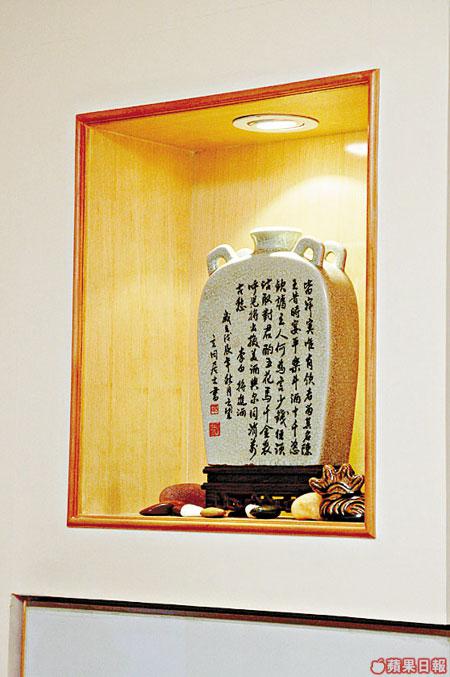 皆寂寞惟有飲者留其名陳
王昔時宴平樂斗酒十千恣
歡謔主人何為言少錢徑須
沽取對君酌五花馬千金裘
呼兒將出換美酒與爾同消萬
古愁
李白 將進酒
年秋月
居士書
蘋果日報